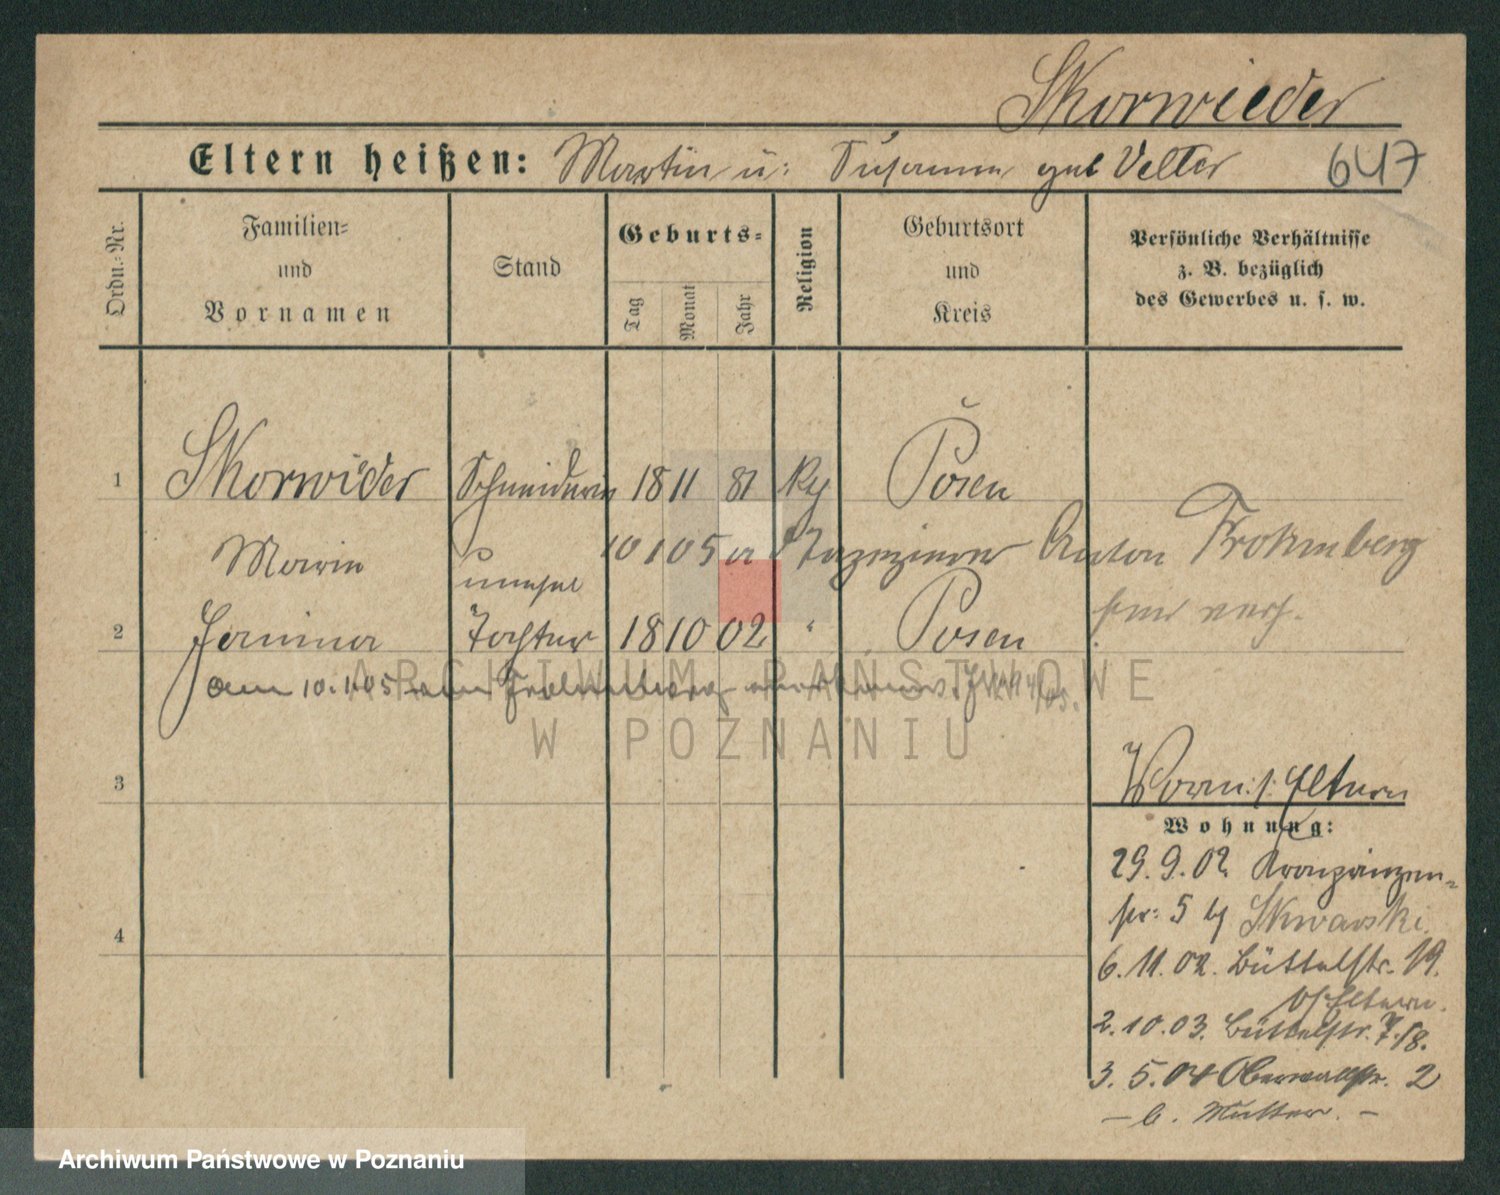 Skorwieder
Eltern heißen: Martin u: Susanna geb Velter 647
Ordn.=Nr.
Familien=
und
Vornamen
Stand
Geburts=
Tag
Monat
Jahr
Religion
Geburtsort
und
Kreis
Persönliche Verhältnisse
z. B. bezüglich
des Gewerbes u. s. w.
1 Skorwieder Schneiderin 18 11 81 Posen
Maria 10 1 05 Anton Frohmberg
2 Janina Tochter 18 10 02 " Posen
am 10.1.05
3
4
Vorm: s. Eltern
Wohnung:
29.9.02. Kronprinzen-
str: 5 by Skwarski.
6.11.02. Büttelstr. 19.
b/Eltern.
2.10.03. Büttelstr. 7/8.
3.5.04 Oberwallstr. 2
– b. Mutter. –
ARCHIWUM PAŃSTWOWE
W POZNANIU
Archiwum Państwowe w Poznaniu